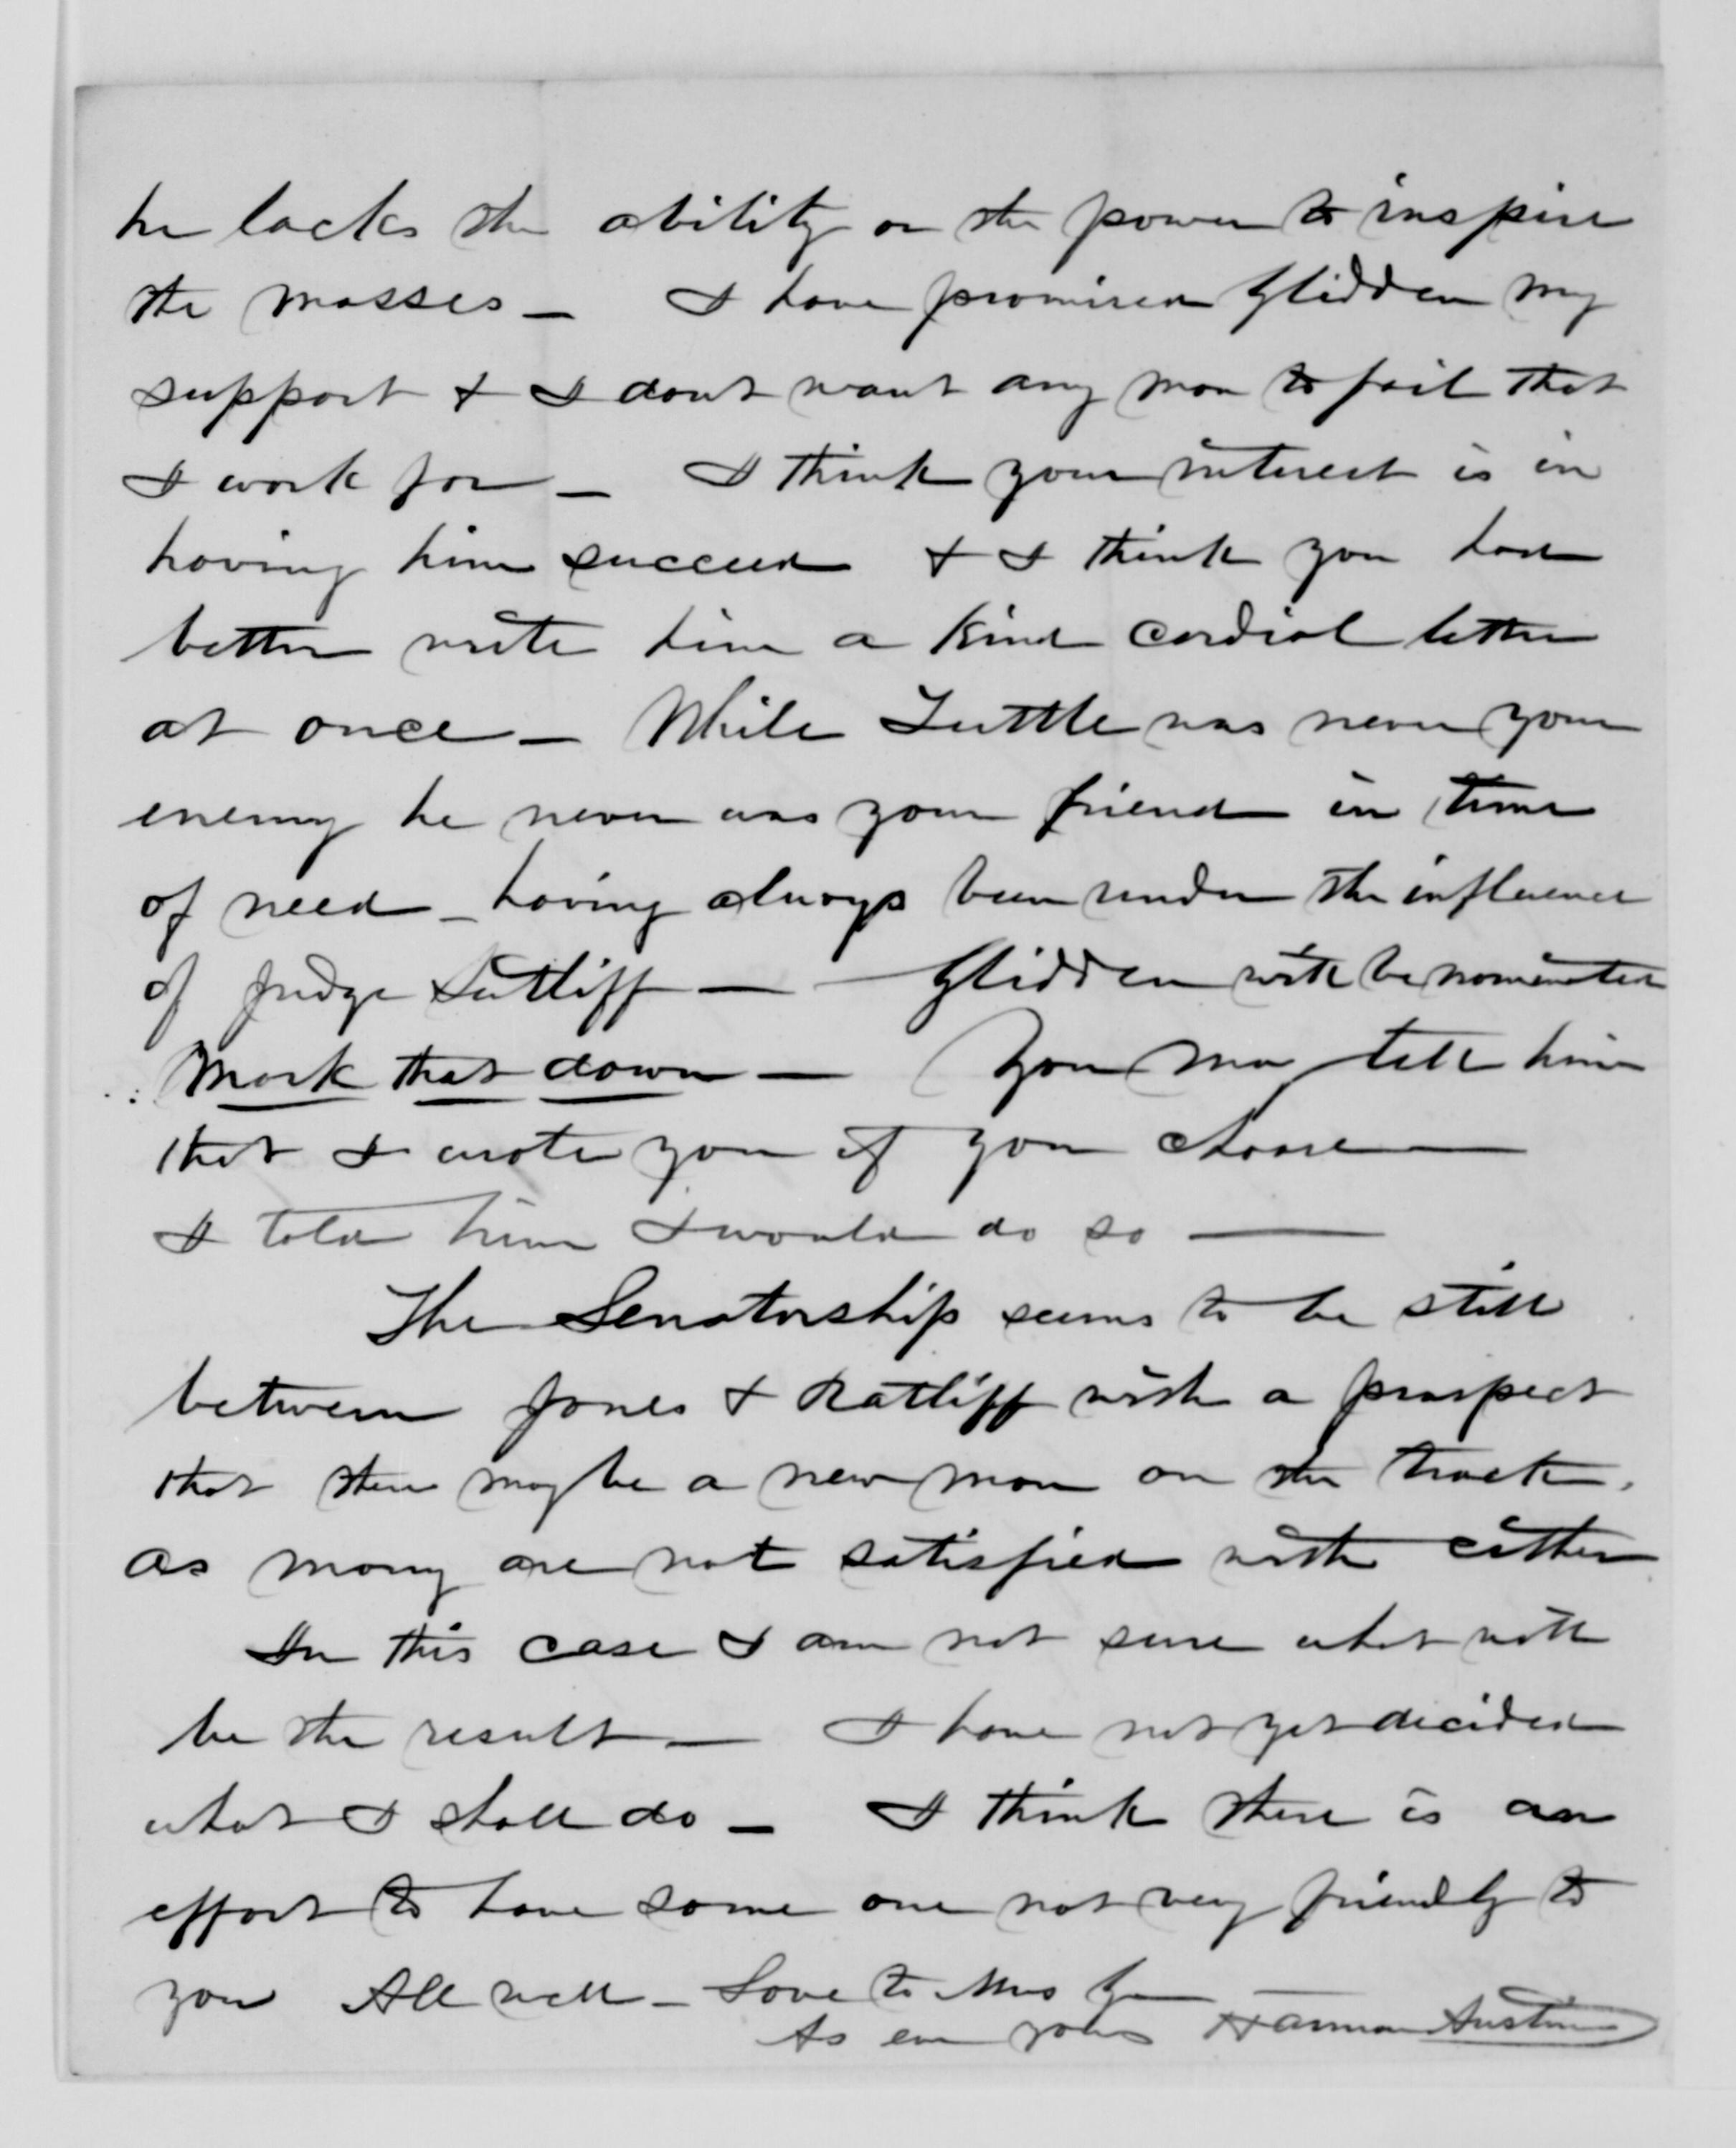 he lacks the ability or the power to inspire
the masses — I have promised Glidden my
support & I dont want any man to fail that
I work for — I think your interest is in
having him succeed & I think you had
better write him a kind cordial letter
at once — While Tuttle was never your
enemy he never was your friend in time
of need — having always been under the influence
of Judge Sutliff — — Glidden will be nominated
Mark that down — You may tell him
that I wrote you if you choose —
I told him I would do so —
The Senatorship seems to be still
between Jones & Ratliff with a prospect
that there may be a new man on the track.
as many are not satisfied with either
In this case I am not sure what will
be the result — I have not yet decided
what I shall do — I think there is an
effort to have some one not very friendly to
you All well — Love to Mrs G —
As ever yours Harmon Austin